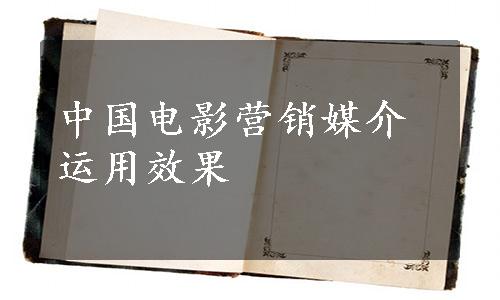 中国电影营销媒介
运用效果